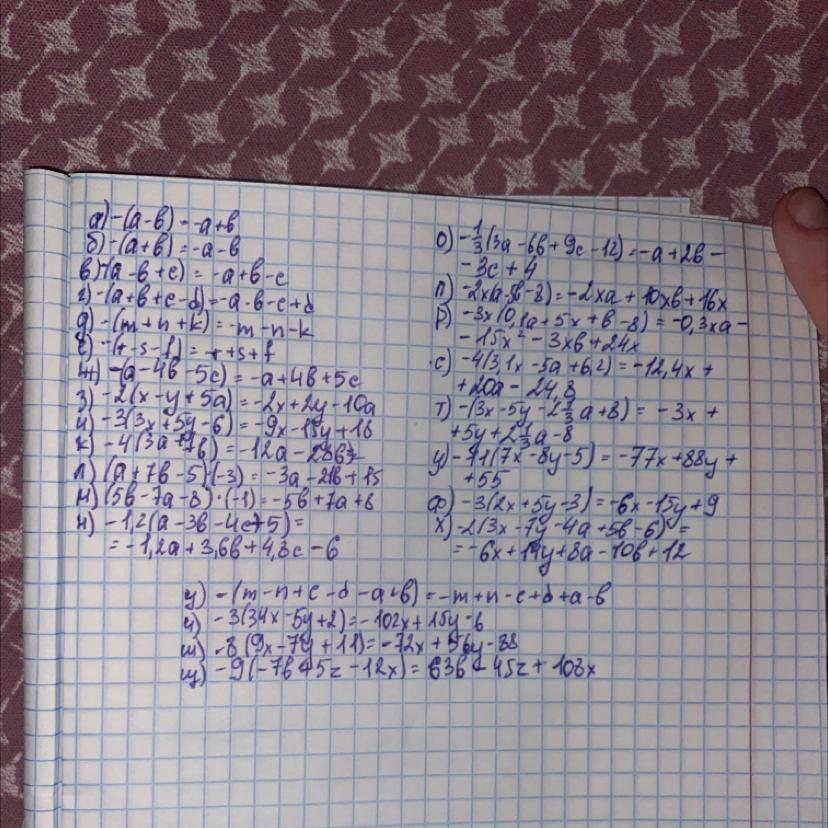 а) -(a-b) = -a+b
б) -(a+b) = -a-b
в) -(a-b+c) = -a+b-c
г) -(a+b+c-d) = -a-b-c+d
д) -(m+n+k) = -m-n-k
е) -(r-s-f) = -r+s+f
ж) -(a-4b-5c) = -a+4b+5c
з) -2(x-y+5a) = -2x+2y-10a
и) -3(3x+5y-6) = -9x-15y+18
к) -4(3a+7b) = -12a-28b
л) (a+7b-5)·(-3) = -3a-21b+15
м) (5b-7a-8)·(-1) = -5b+7a+8
н) -1,2(a-3b-4c+5) =
= -1,2a+3,6b+4,8c-6
о) -1/3(3a-6b+9c-12) = -a+2b-
-3c+4
п) -2x(a-5b-8) = -2xa+10xb+16x
р) -3x(0,1a+5x+b-8) = -0,3xa-
-15x²-3xb+24x
с) -4(3,1x-5a+6,2) = -12,4x+
+20a-24,8
т) -(3x-5y-2 1/3 a+8) = -3x+
+5y+2 1/3 a-8
у) -11(7x-8y-5) = -77x+88y+
+55
ф) -3(2x+5y-3) = -6x-15y+9
х) -2(3x-7y-4a+5b-6) =
= -6x+14y+8a-10b+12
ц) -(m-n+c-d-a+b) = -m+n-c+d+a-b
ч) -3(34x-5y+2) = -102x+15y-6
ш) -8(9x-7y+11) = -72x+56y-88
щ) -9(-7b+5z-12x) = 63b-45z+108x